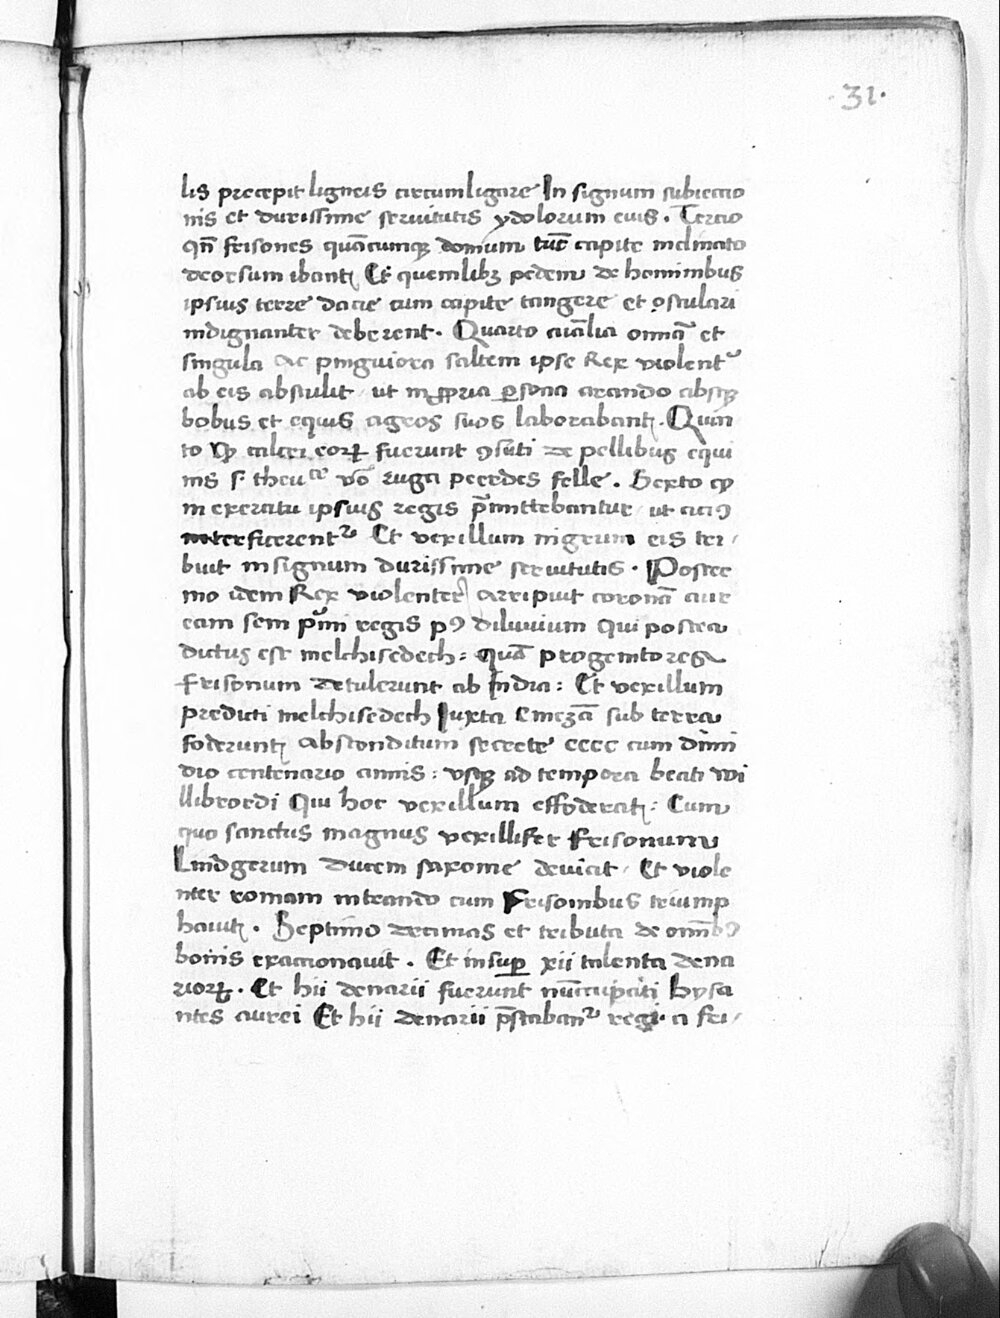 31.
lis precepit ligneis circumligare In signum subiectio
nis et durissime seruitutis ydolorum eius. Tercio
qn̄ frisones quācumqꝫ domum tūc capite inclinato
deorsum ibant Et quemlibꝫ pedem de hominibus
ipsius terre dacie cum capite tangere et ꝯosculari
indignanter deberent. Quarto aīalia omīa et
singula ac pinguiora saltem ipse Rex violent᷑
ab eis abstulit ut in ꝓpria ꝑsona arando absqꝫ
bobus et equis agros suos laborabant. Quin
to calcei eoꝝ fuerunt ꝯsuti de pellibus equi
nis s. theu^ce vō ruga peerdes felle. Sexto
in exercitu ipsius regis p̄mittebantur ut cicꝯ
interficerent᷑ Et vexillum nigrum eis tri
buit in signum durissime seruitutis. Postre
mo idem Rex violenter arripuit coronā aur
eam sem p̄mi regis pꝯ diluuium qui postea
dictus est melchisedech: quā progenitores
frisonum detulerunt ab India: Et vexillum
predicti melchisedech Iuxta emezā sub terra
foderunt absconditum secrete cccc cum dimi
dio centenario annis: vsqꝫ ad tempora beati wi
llibrordi Qui hoc vexillum effoderat: Cum
quo sanctus magnus vexillifer Frisonum
Lindgerum ducem saxonie deuicit Et viole
nter romam intrando cum Frisonibus triump
hauit. Septimo decimas et tributa de omībꝯ
bonis exactionauit. Et insuꝑ xii talenta dena
rioꝝ. Et hii denarii fuerunt nūcupati bysa
ntes aurei Et hii denarii p̄stabant᷑ regi a fri